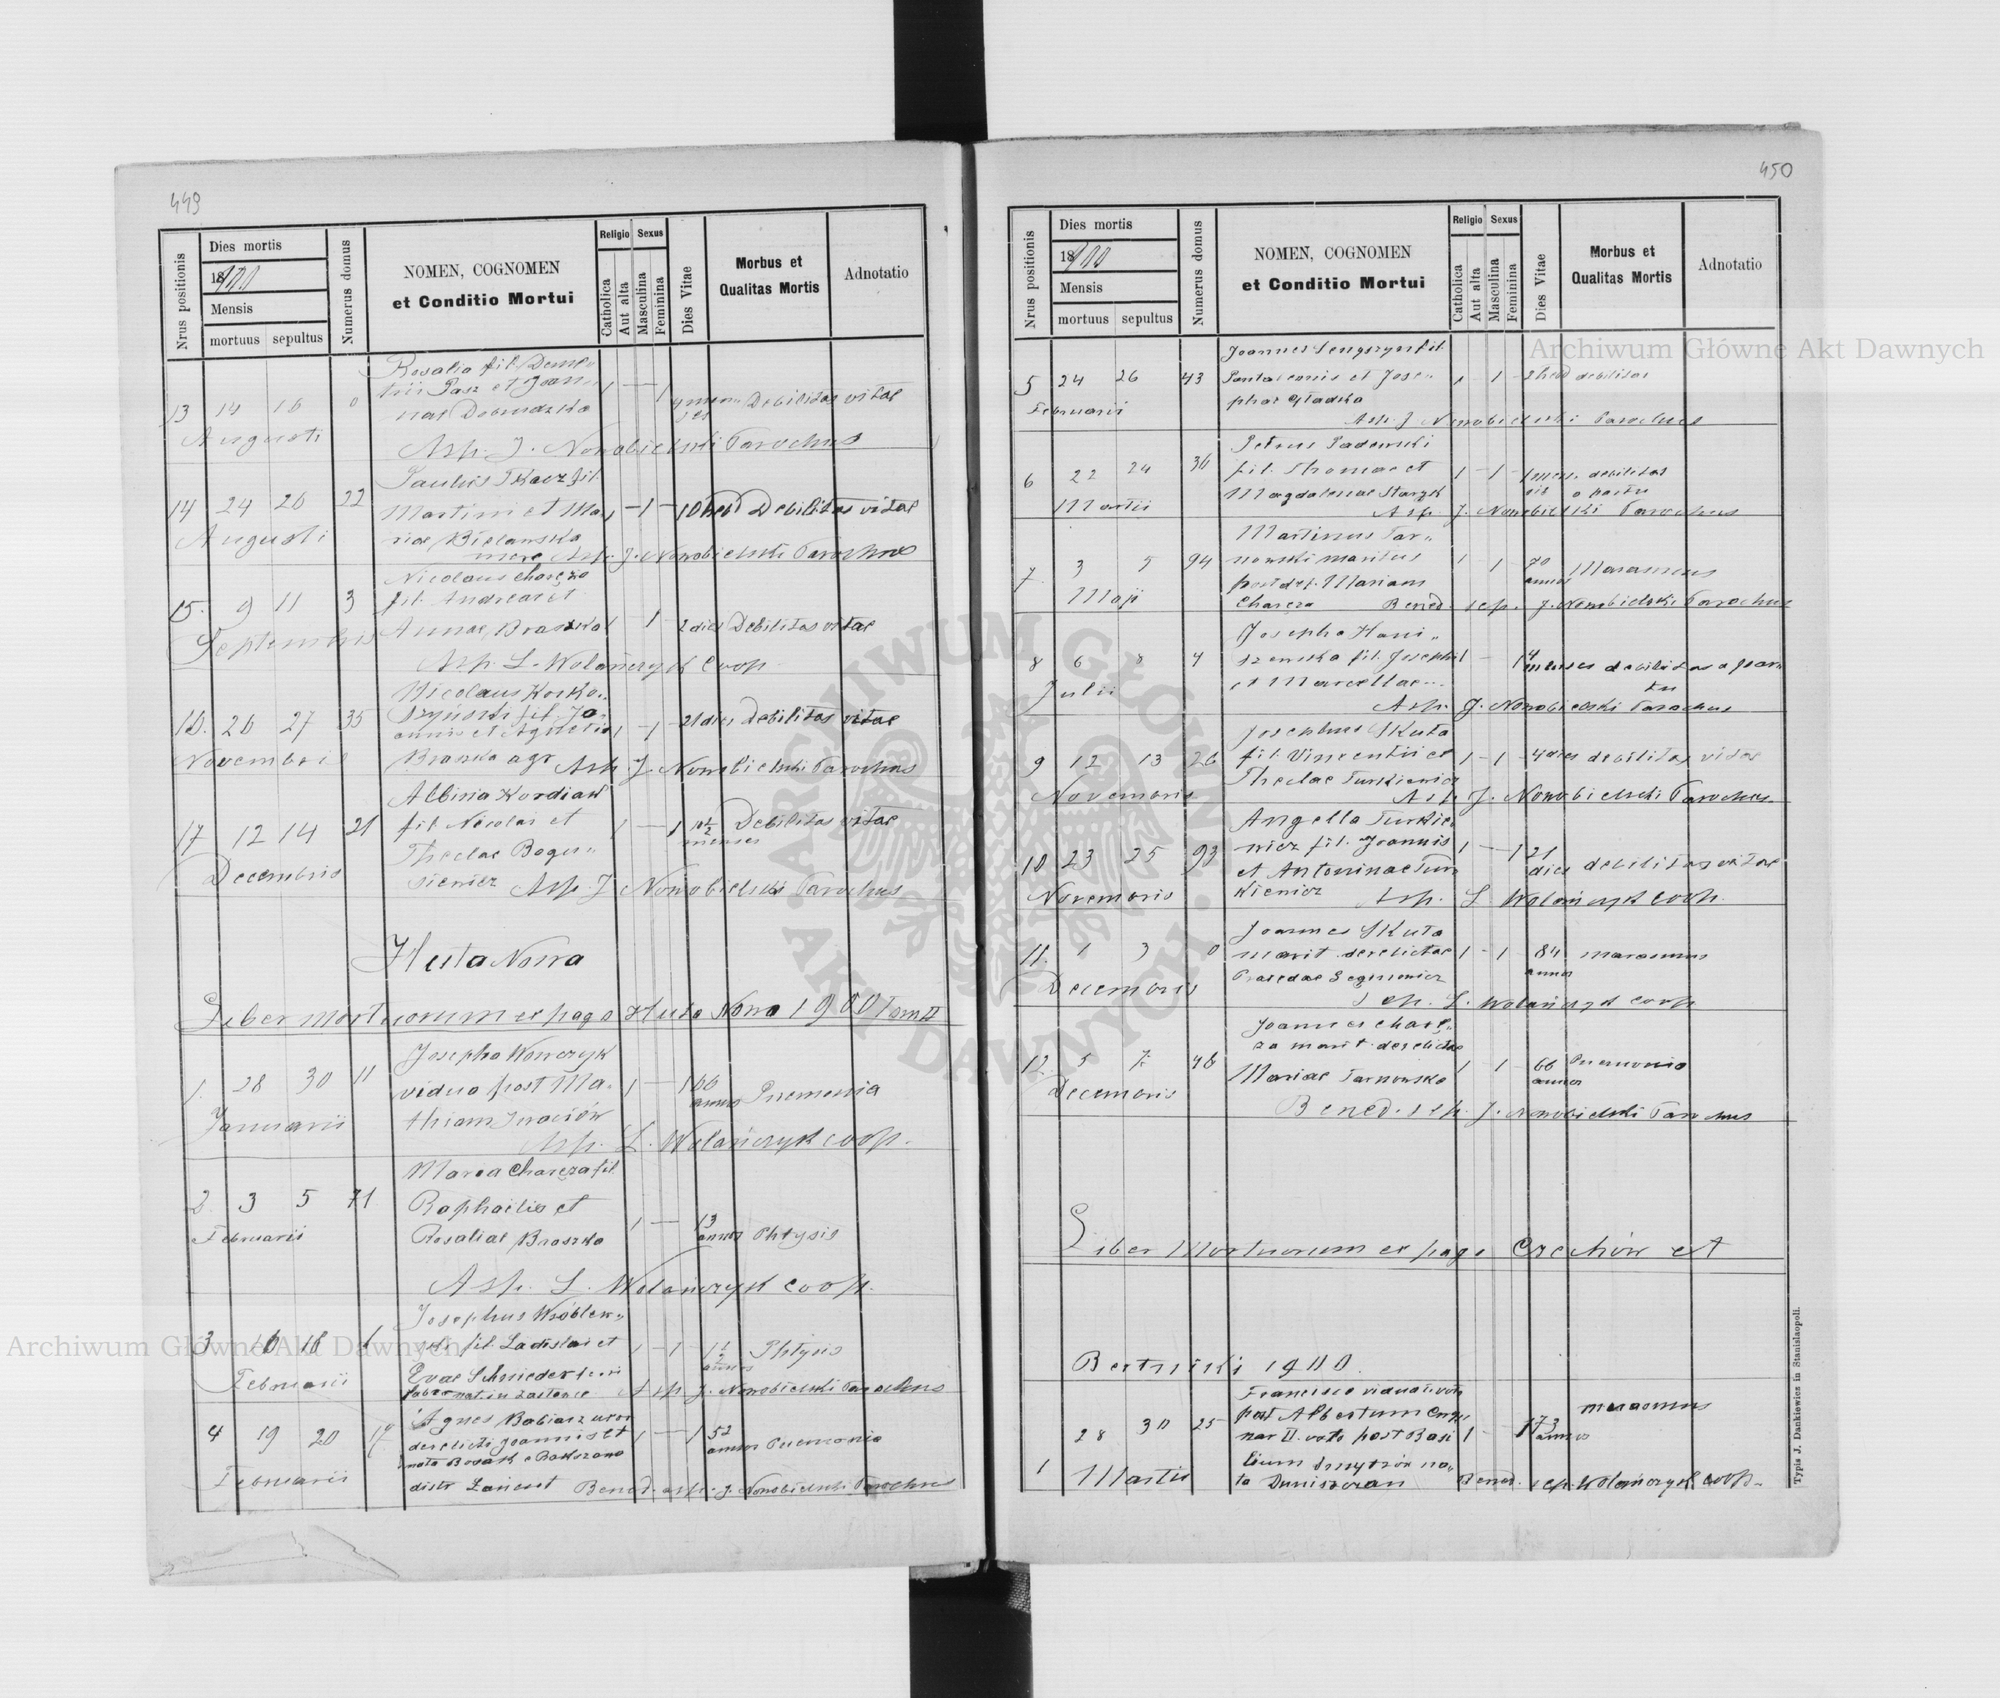 449
Nrus positionis
Dies mortis
1900
Mensis
mortuus sepultus
Numerus domus
NOMEN, COGNOMEN
et Conditio Mortui
Religio Sexus
Catholica
Aut alta
Masculina
Feminina
Dies Vitae
Morbus et
Qualitas Mortis
Adnotatio
Rosalia fil. Deme
trii Pasz et Joan
13 14 16 0 nae 1 — 1 4 men Debilitas vitae
ses
Augusti
Asp. J. Nowobielski Parochus
Paulus Tkacz fil.
14 24 26 22 Martini et Ma 1 — 1 — 10 hebd Debilitas vitae
Augusti
riae Bielawska
Asp. J. Nowobielski Parochus
Nicolaus Charęza
15. 9 11 3 fil. Andreae et
Septembris Annae Braszka 1 1 — 2 dies Debilitas vitae
Asp. L. Wolańczyk coop.
Nicolaus Korko
16. 26 27 35 szyński fil. Jo
annis et Agnetis 1 — 1 — 21 dies Debilitas vitae
Novembris Braszka agr Asp. J. Nowobielski Parochus
Albina Kordiak
17 12 14 21 fil. Nicolai et 1 — 1 10 1/2 Debilitas vitae
menses
Decembris
Theclae Bogu
siewicz Asp. J. Nowobielski Parochus
Huta Nowa
Liber mortuorum ex pago Huta Nowa 1900 Tom II
Josepha Wowczyk
1. 28 30 11 vidua post Ma 1 — 1 66
annos Pnemonia
Januarii thiam
Asp. L. Wolańczyk coop.
Maria Charęza fil.
2. 3 5 71 Raphaelis et
Februarii Rosaliae Braszka 1 — 13
annos Phtysis
Asp. L. Wolańczyk coop.
Josephus Wróblew
3 16 18 ski fil. Ladislai et 1 — 1 — 1 1/2 Phtysis
annos
Februarii Evae
Asp. J. Nowobielski Parochus
Agnes Babiarz uxor
4 19 20 derelicta Joannis et 1 — 1 52
annos Pnemonia
nata
Februarii
distr Łańcut Bened. asp. J. Nowobielski Parochus
450
Nrus positionis
Dies mortis
1900
Mensis
mortuus sepultus
Numerus domus
NOMEN, COGNOMEN
et Conditio Mortui
Religio Sexus
Catholica
Aut alta
Masculina
Feminina
Dies Vitae
Morbus et
Qualitas Mortis
Adnotatio
Joannes fil.
5 24 26 43 Pantaleonis et Jose 1 — 1 — 2 hebd debilitas
Februarii phae Gładka
Asp. J. Nowobielski Parochus
Petrus Padewski
6 22 24 36 fil. Thomae et 1 — 1 — 1 men. debilitas
sis a partu
Martii Magdalenae
Asp. J. Nowobielski Parochus
Martinus Tar
7 3 5 94 nowski maritus 1 1 — 70
annos Marasmus
Maji post def. Mariam
Charęza Bened. sep. J. Nowobielski Parochus
Josepha Hani
8 6 8 4 szewska fil. Josephi 1 — 1 4
menses debilitas a par
tu
Julii et Marcellae
Asp. J. Nowobielski Parochus
Josephus Skuta
9 12 13 26 fil. Vincentii et 1 — 1 — 4 dies debilitas vitae
Novembris Theclae Turkiewicz
Asp. J. Nowobielski Parochus.
Angella Turkie
10 23 25 93 wicz fil. Joannis 1 — 1 21
dies debilitas vitae
et Antoninae Tur
Novembris kiewicz Asp. L. Wolańczyk coop.
Joannes Skuta
11. 1 3 0 marit. derelictae 1 — 1 84 marasmus
annos
Decembris Praxedae
Sep. L. Wolańczyk coop
Joannes Charę
za marit. derelictae
12. 5 7 46 Mariae Tarnowska 1 1 — 66 Pnemonia
annos
Decembris
Bened. sep. J. Nowobielski Parochus
Liber Mortuorum ex pago Czechów est
Bertniki 1900.
Francisca vidua I. voto
28 30 25 post Albertum 1 — 1 73 marasmus
annos
nar II. voto post Basi
1 Martii lium Dmytrów na
ta Duniszczan Bened. sep. Wolańczyk coop.
Typis J. Dankiewicz in Stanislaopoli.
Archiwum Główne Akt Dawnych
Archiwum Główne Akt Dawnych
ARCHIWUM GŁÓWNE AKT DAWNYCH